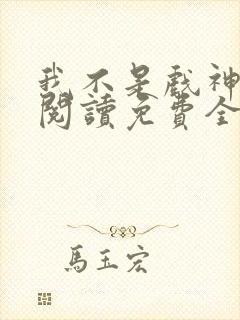 我不是戲神
閱讀免費全
馬玉宏